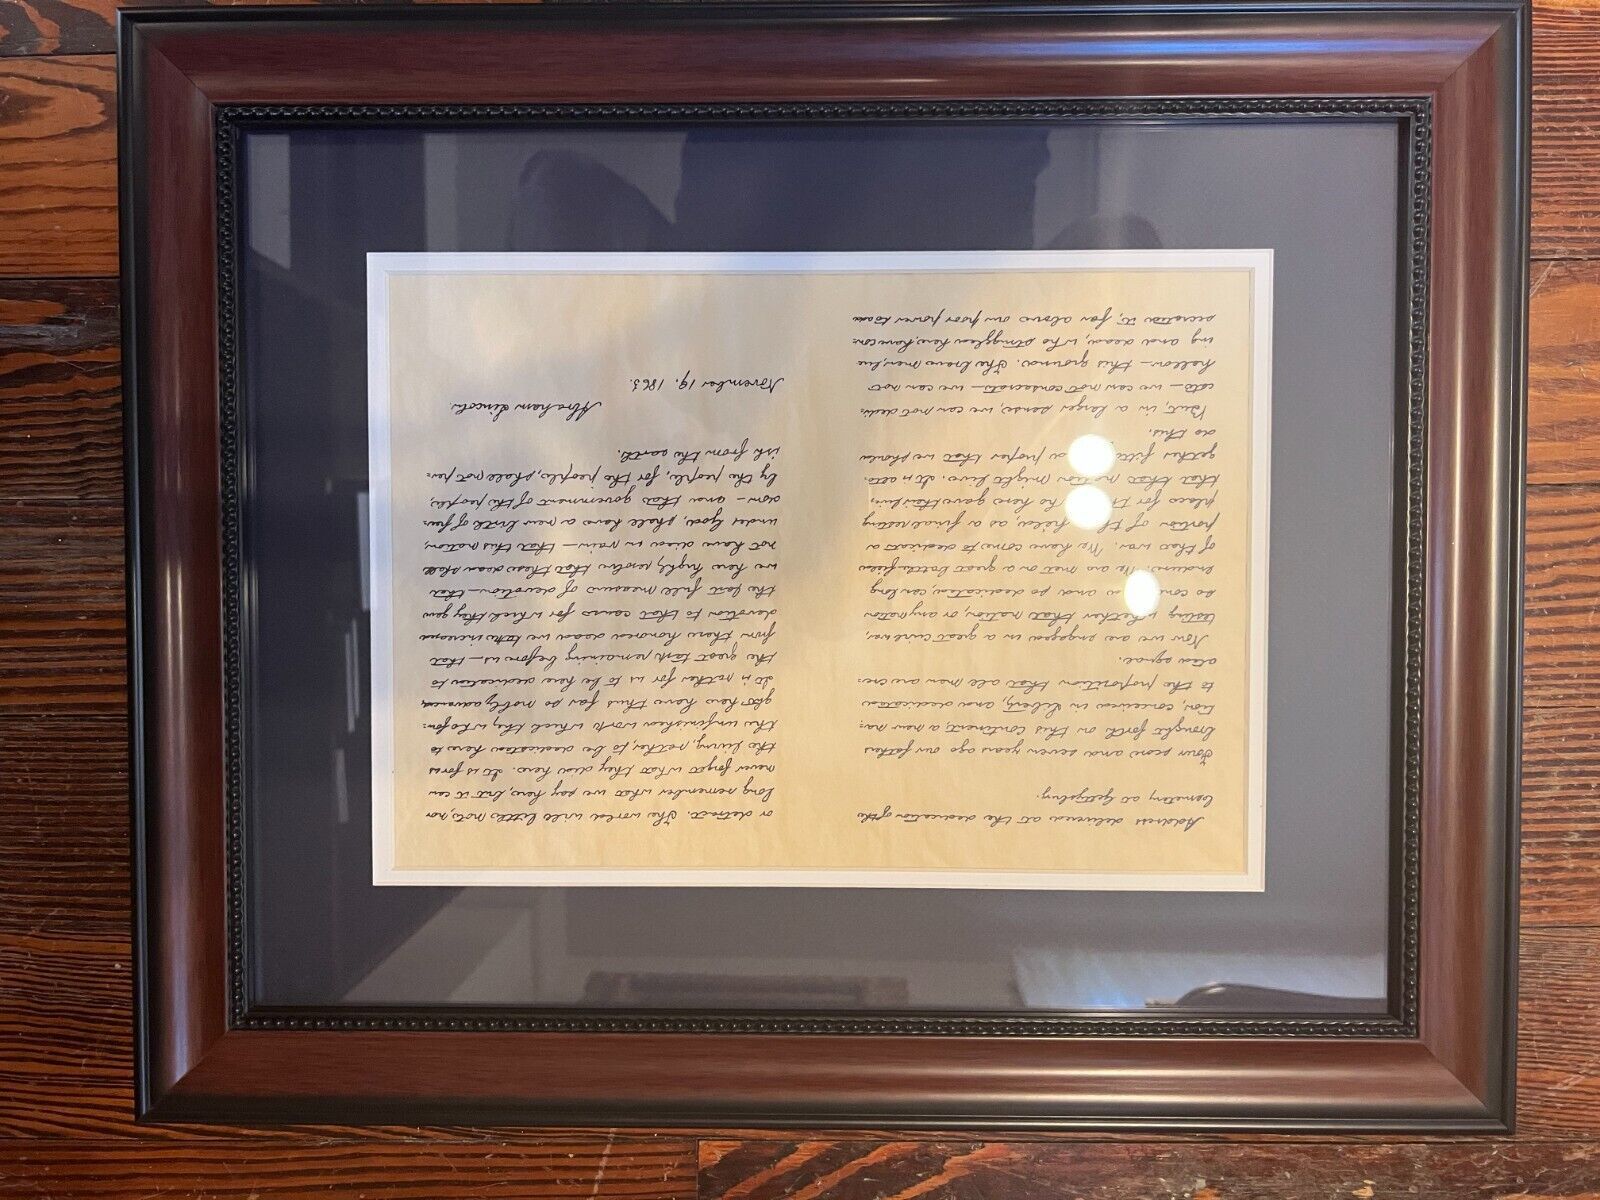 Address delivered at the dedication of the
Cemetery at Gettysburg.
Four score and seven years ago our fathers
brought forth on this continent, a new na-
tion, conceived in Liberty, and dedicated
to the proposition that all men are cre-
ated equal.
Now we are engaged in a great civil war,
testing whether that nation, or any nation
so and so dedicated, can long
endure. We are met on a great battle-field
of that war. We have come to dedicate a
portion of field, as a final resting
place for here gave their lives,
that that nation might live. It is alto-
gether proper that we should
do this.
But, in a larger sense, we can not dedi-
cate – we can not consecrate – we can not
hallow – this ground. The brave men, liv-
ing and dead, who struggled here, have con-
secrated it, far above our poor power to add
or detract. The world will little note, nor
long remember what we say here, but it can
never forget what they did here. It is for us
the living, rather, to be dedicated here to
the unfinished work which they who fou-
ght here have thus far so nobly advanced.
It is rather for us to be here dedicated to
the great task remaining before us – that
from these honored dead we take increased
devotion to that cause for which they gave
the last full measure of devotion – that
we here highly resolve that these dead shall
not have died in vain – that this nation,
under God, shall have a new birth of free-
dom – and that government of the people,
by the people, for the people, shall not per-
ish from the earth.
Abraham Lincoln.
November 19, 1863.